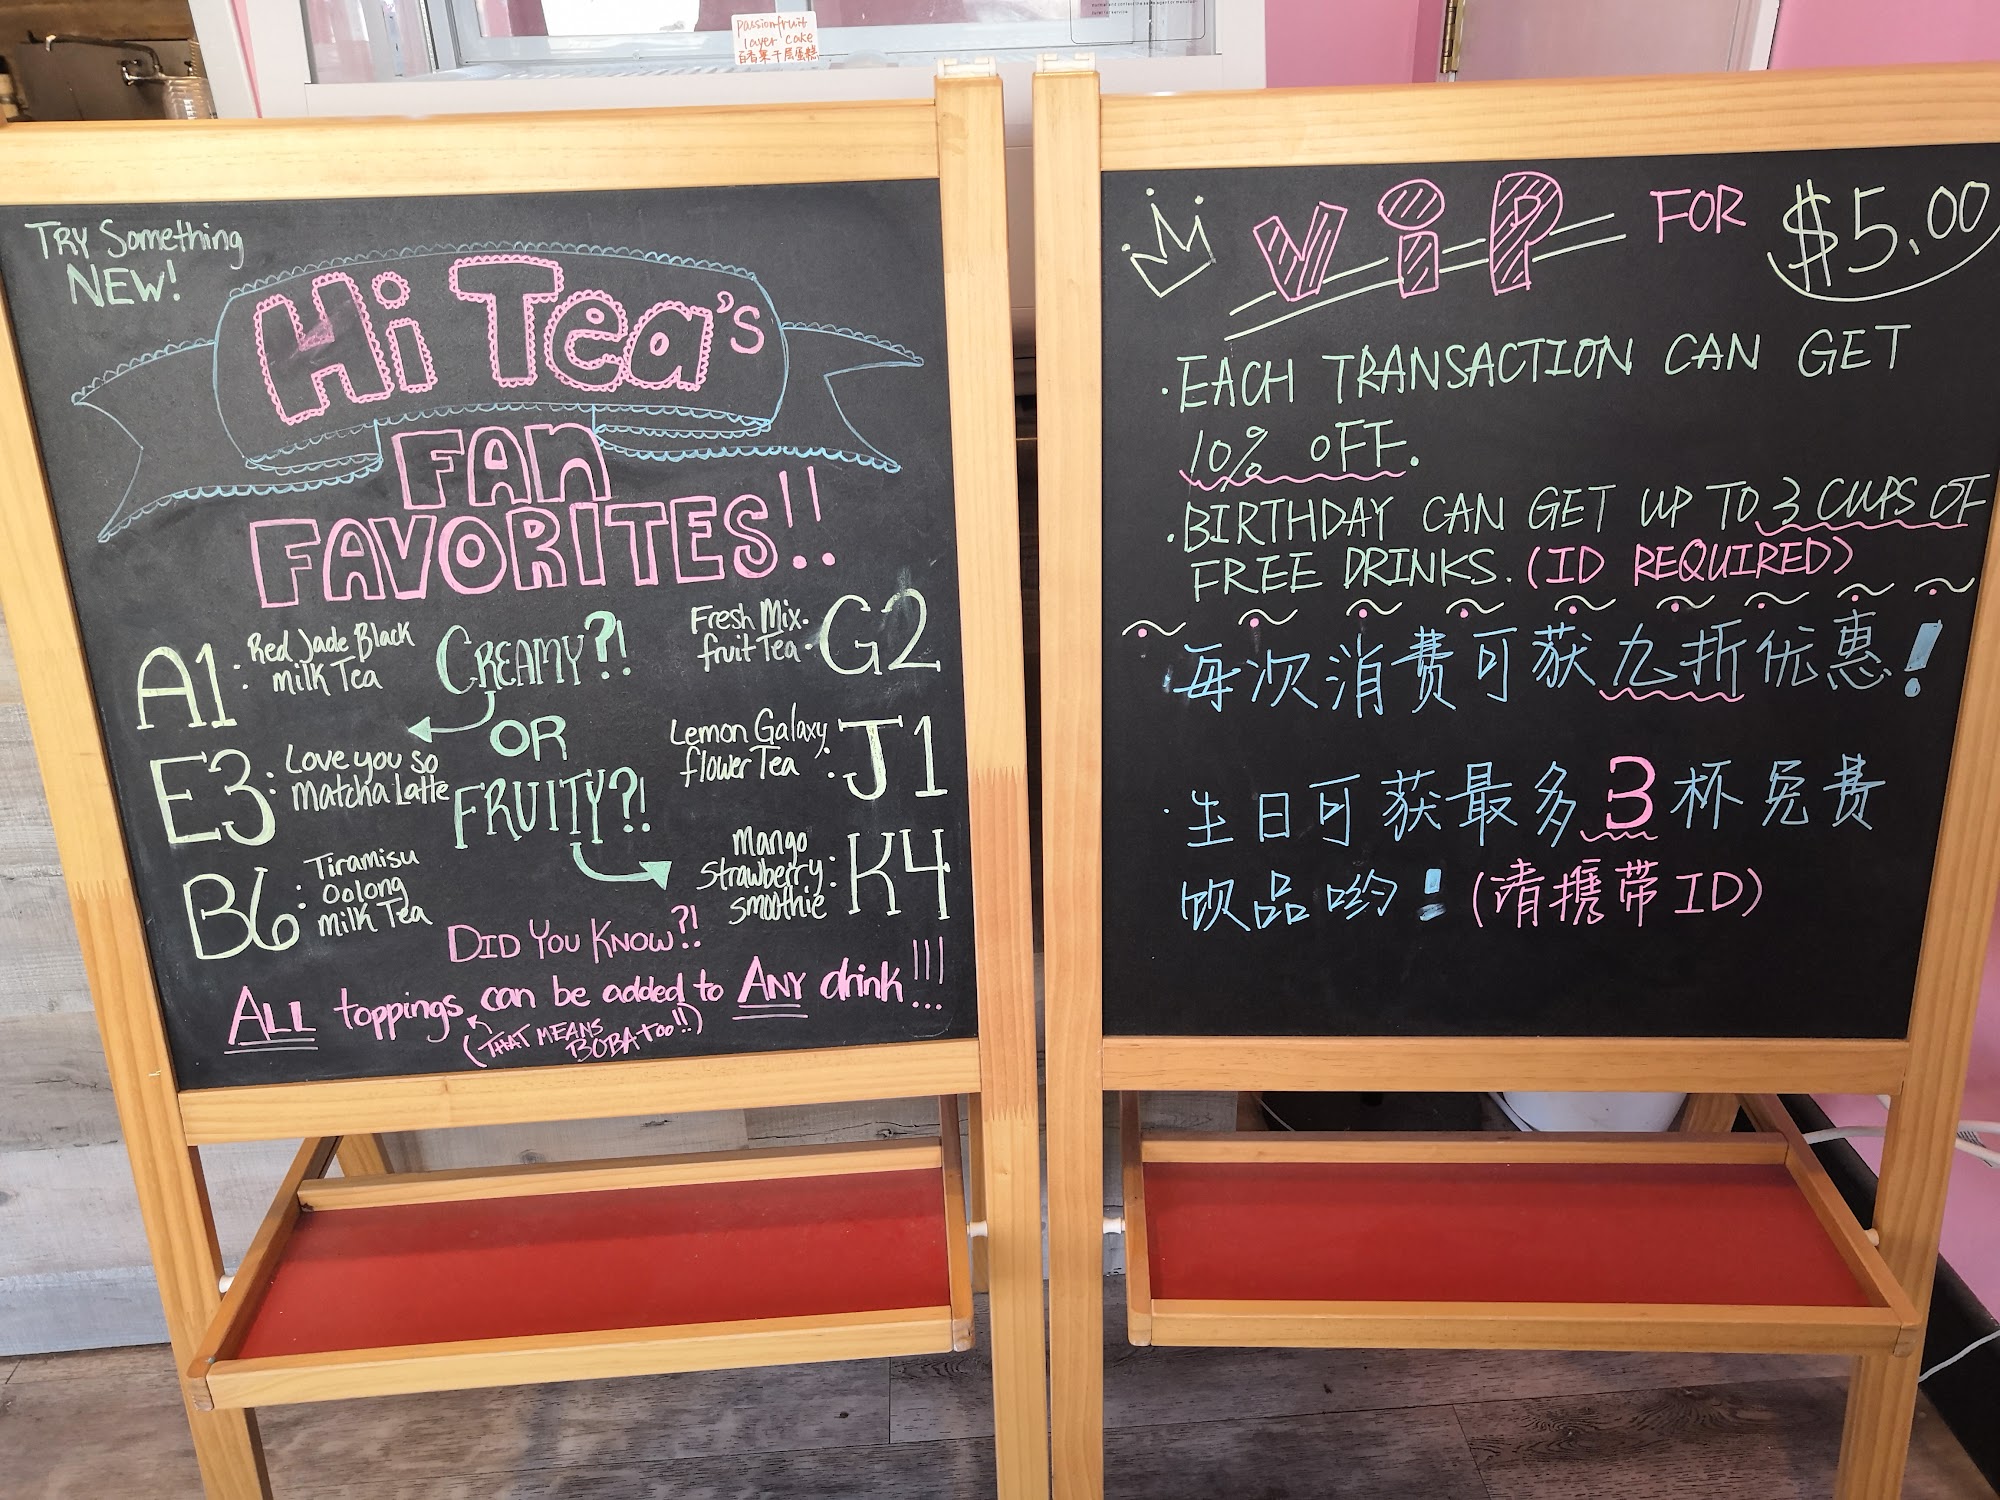 passionfruit
layer cake
百香果千层蛋糕
TRY Something
NEW!
Hi Tea's
FAN
FAVORITES!!
A1: Red Jade Black
milk Tea
E3: Love you so
Matcha Latte
B6: Tiramisu
Oolong
milk Tea
CREAMY?!
OR
FRUITY?!
Fresh Mix
fruit Tea: G2
Lemon Galaxy
flower Tea: J1
Mango
Strawberry
smoothie: K4
DID YOU KNOW?!
ALL toppings can be added to ANY drink!!!
(THAT MEANS
BOBA too!!)
ViP FOR $5.00
· EACH TRANSACTION CAN GET
10% OFF.
· BIRTHDAY CAN GET UP TO 3 CUPS OF
FREE DRINKS. (ID REQUIRED)
· 每次消费可获九折优惠!
· 生日可获最多3杯免费
饮品哟! (请携带ID)